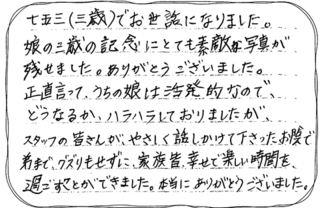 七五三(三歳)でお世話になりました。
娘の三歳の記念にとても素敵な写真が
残せました。ありがとうございました。
正直言って、うちの娘は活発的なので、
どうなるか、ハラハラしておりましたが、
スタッフの皆さんが、やさしく話しかけて下さったお陰で
弟まで、グズりもせずに、家族皆、幸せで楽しい時間を、
過ごすことができました。本当にありがとうございました。